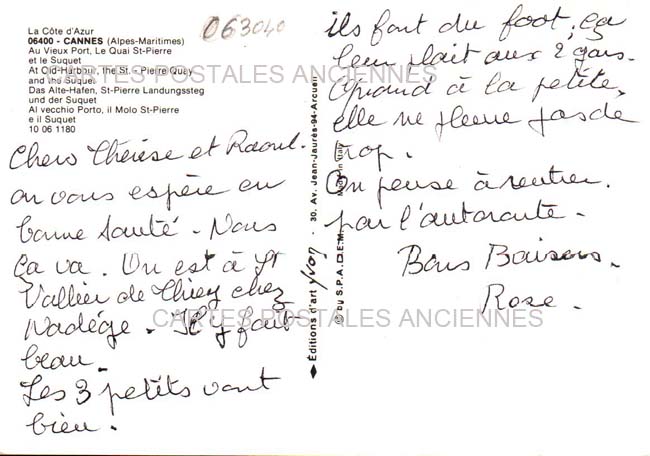 La Côte d'Azur
06400 - CANNES (Alpes-Maritimes)
Au Vieux Port, Le Quai St-Pierre
et le Suquet
At Old-Harbour, the St. Pierre Quay
and the Suquet
Das Alte-Hafen, St-Pierre Landungssteg
und der Suquet
Al vecchio Porto, il Molo St-Pierre
e il Suquet
10 06 1180
063040
CARTES POSTALES ANCIENNES
Chers Thérèse et Raoul.
on vous espère en
bonne santé. Nous
ça va. On est à St
Vallier de Thiey chez
Nadège. Il y fait
beau.
Les 3 petits vont
bien.
Editions d'art Yvon - 30, Av. Jean-Jaurès-94-Arcueil
© by S.P.A.D.E.M. Made in Italy
ils font du foot, ça
leur plait aux 2 gars.
Quand à la petite,
elle ne pleure pas de
trop.
On pense à rentrer
par l'autoroute.
Bons Baisers.
Rose.
CARTES POSTALES ANCIENNES